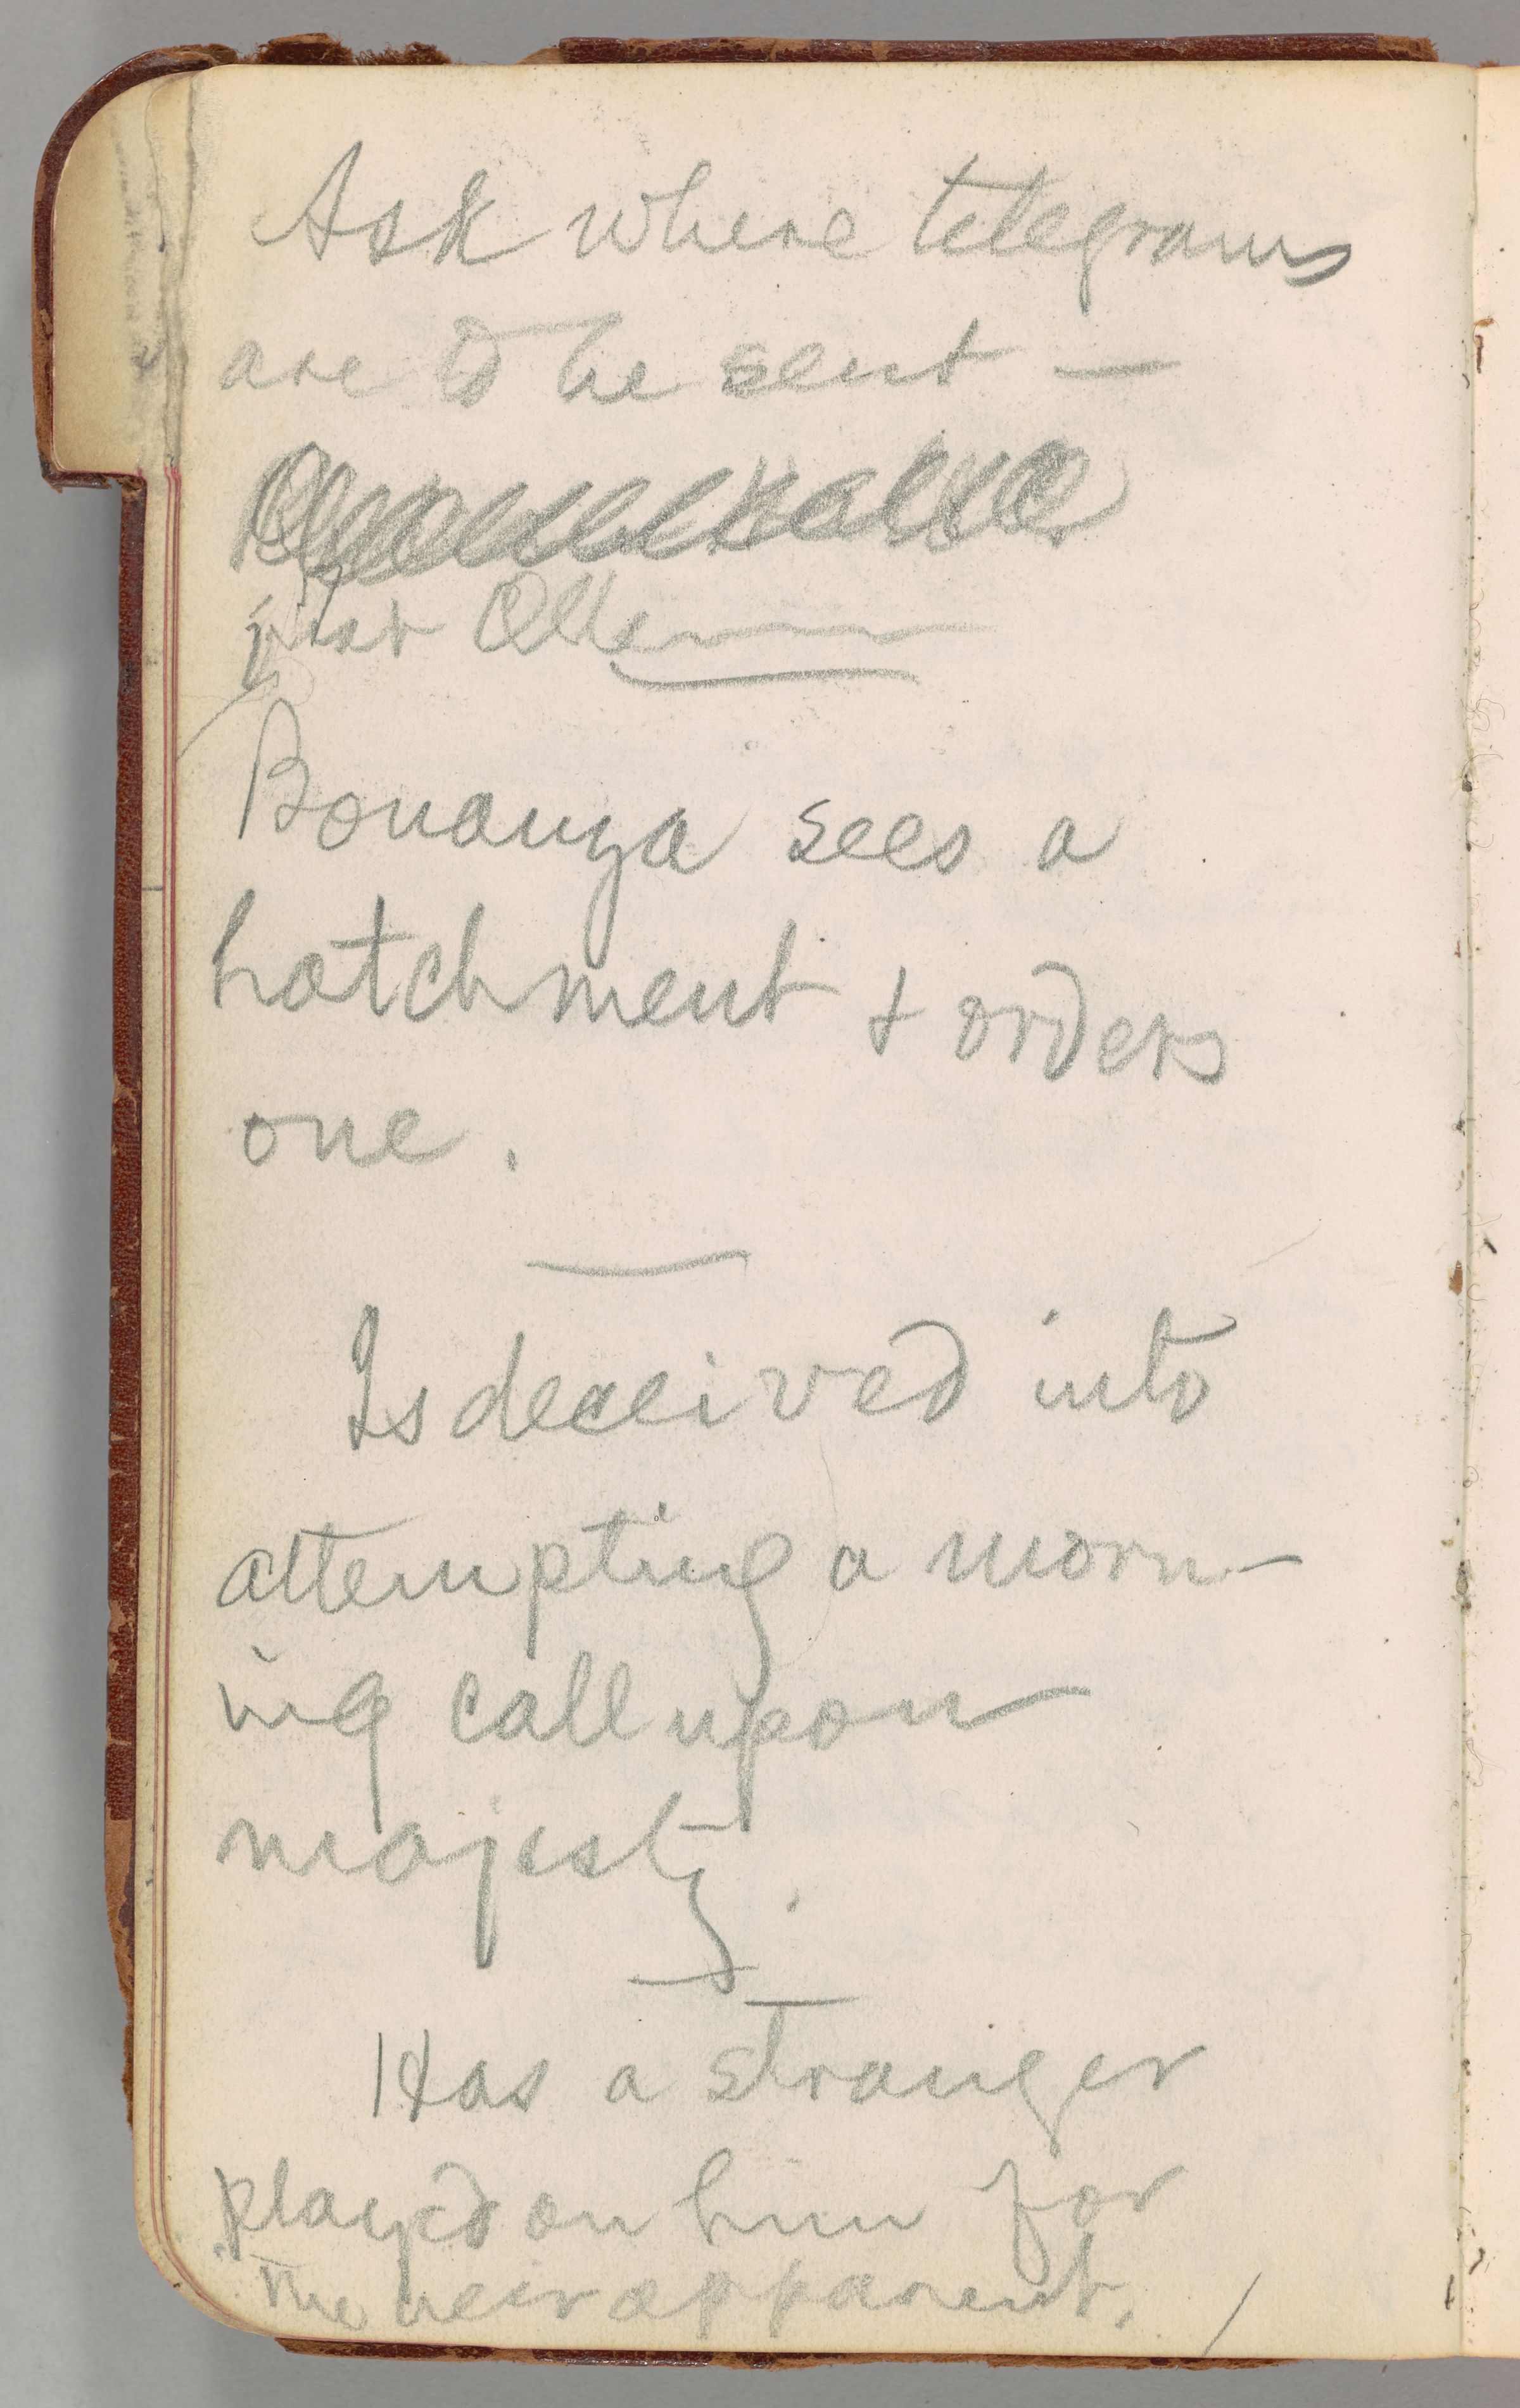 Ask where telegrams
are to be sent —
Bonanza sees a
hatchment + orders
one.
Is deceived into
attempting a morn-
ing call upon
majesty.
Has a stranger
played on him for
the heir apparent.